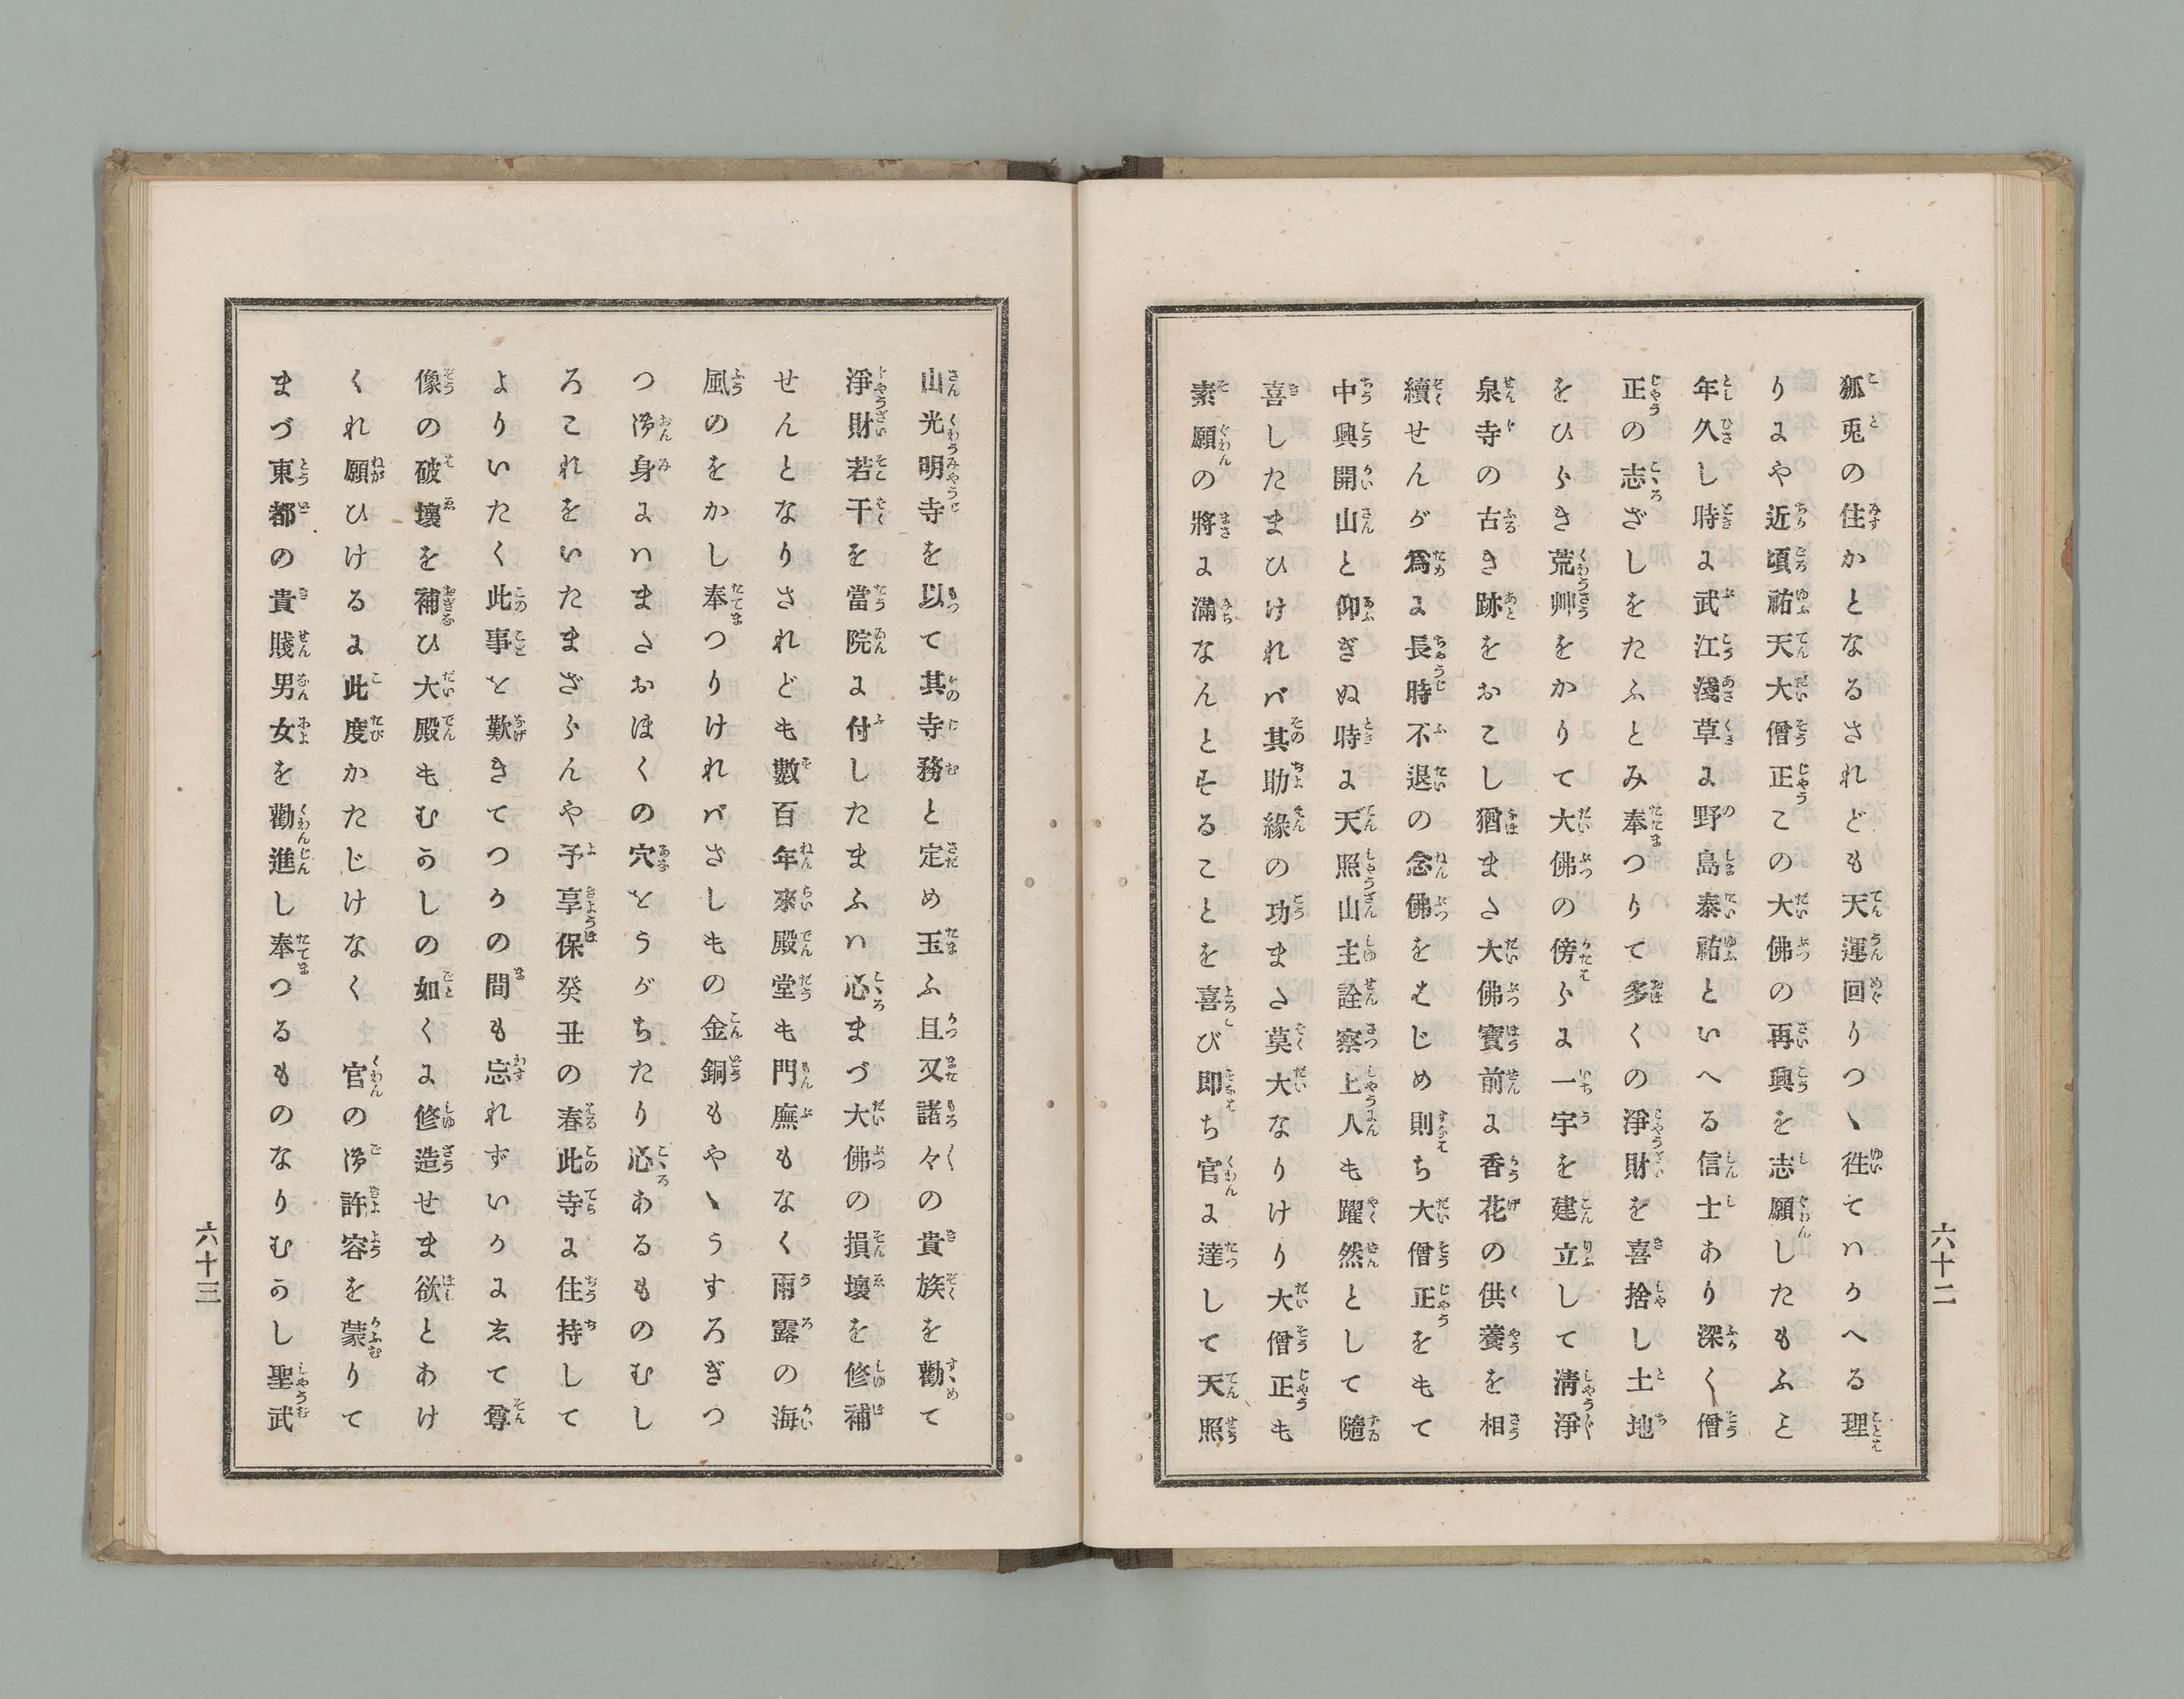 狐兎の住かとなるされども天運回りつヽ徃てハかへる理
りにや近頃祐天大僧正この大佛の再興を志願したもふと
年久し時に武江淺草に野島泰祐といへる信士あり深く僧
正の志ざしをたふとみ奉つりて多くの淨財を喜捨し土地
をひらき荒艸をかりて大佛の傍らに一宇を建立して淸淨
泉寺の古き跡をおこし猶まさ大佛寶前に香花の供養を相
續せんが爲に長時不退の念佛をはじめ則ち大僧正をもて
中興開山と仰ぎぬ時に天照山主詮察上人も躍然として隨
喜したまひけれバ其助緣の功まさ莫大なりけり大僧正も
素願の將に滿なんとすることを喜び即ち官に達して天照
六十二
山光明寺を以て其寺務と定め玉ふ且又諸々の貴族を勸て
淨財若干を當院に付したまふハ心まづ大佛の損壞を修補
せんとなりされども數百年來殿堂も門廡もなく雨露の海
風のをかし奉つりけれバさしもの金銅もやヽうすろぎつ
つ御身にハまさおほくの穴とうがちたり心あるものむし
ろこれをいたまざらんや予享保癸丑の春此寺に住持して
よりいたく此事を歎きてつかの間も忘れずいかにゑて尊
像の破壞を補ひ大殿もむかしの如くに修造せま欲とあけ
くれ願ひけるに此度かたじけなく　官の御許容を蒙りて
まづ東都の貴賤男女を勸進し奉つるものなりむかし聖武
六十三